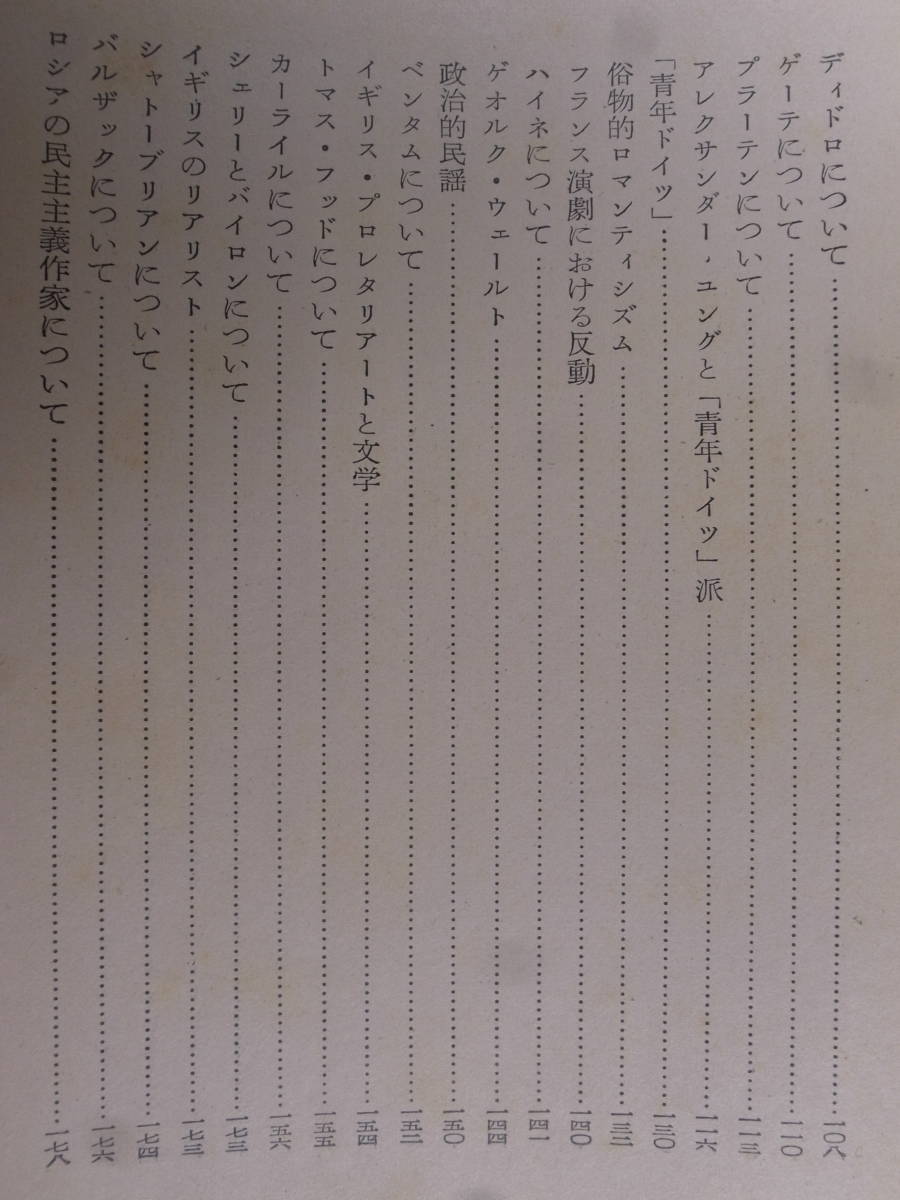 ディドロについて……………一〇八
ゲーテについて……………一一〇
プラーテンについて……………一一三
アレクサンダー・ユングと「青年ドイツ」派……………一一六
「青年ドイツ」……………一三〇
俗物的ロマンティシズム……………一三二
フランス演劇における反動……………一四〇
ハイネについて……………一四一
ゲオルク・ウェールト……………一四四
政治的民謡……………一五〇
ベンタムについて……………一五二
イギリス・プロレタリアートと文学……………一五四
トマス・フッドについて……………一五五
カーライルについて……………一五六
シェリーとバイロンについて……………一七三
イギリスのリアリスト……………一七三
シャトーブリアンについて……………一七四
バルザックについて……………一七六
ロシアの民主主義作家について……………一七八